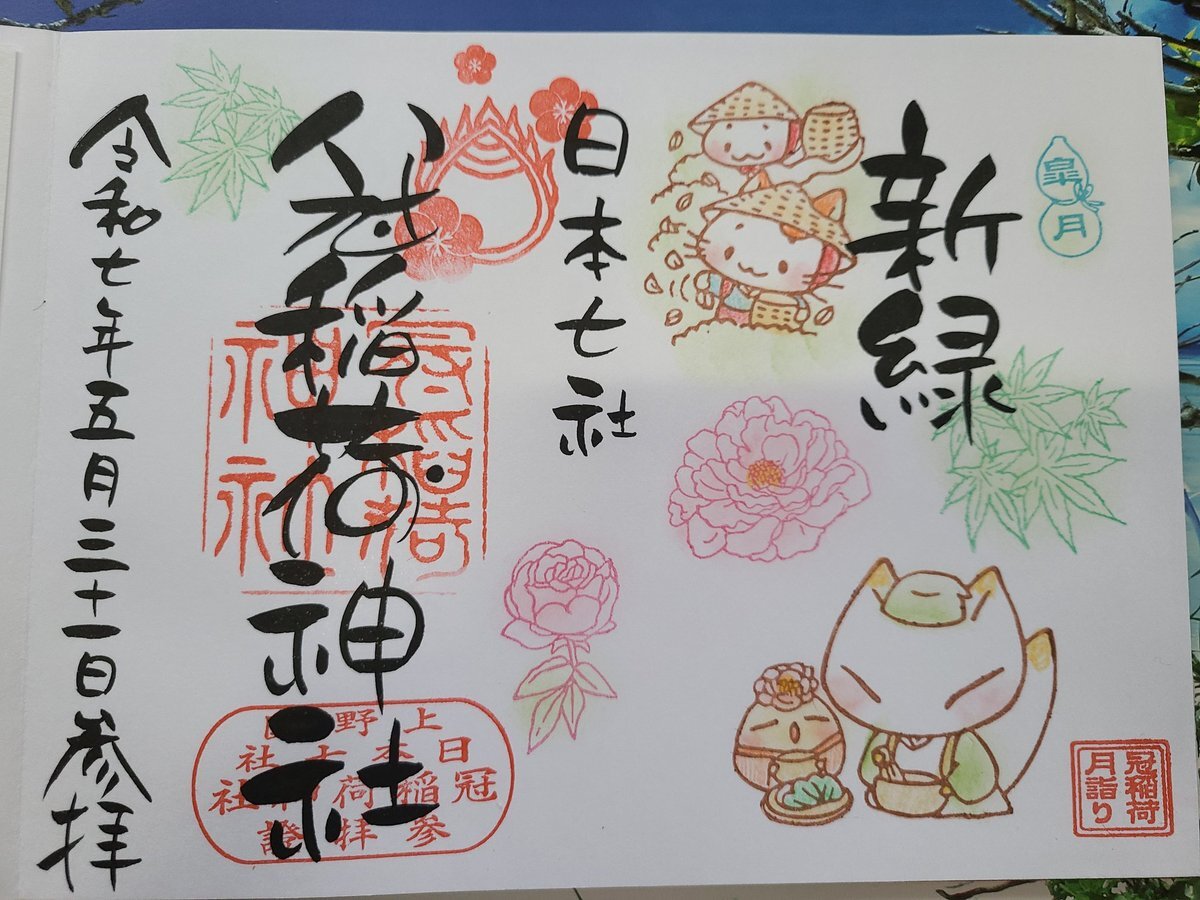 皐月
新緑
日本七社
冠稲荷神社
令和七年五月三十一日参拝
冠稲荷
神社
上野國
日本七社
冠稲荷神社
参拝證
冠稲荷
月詣り